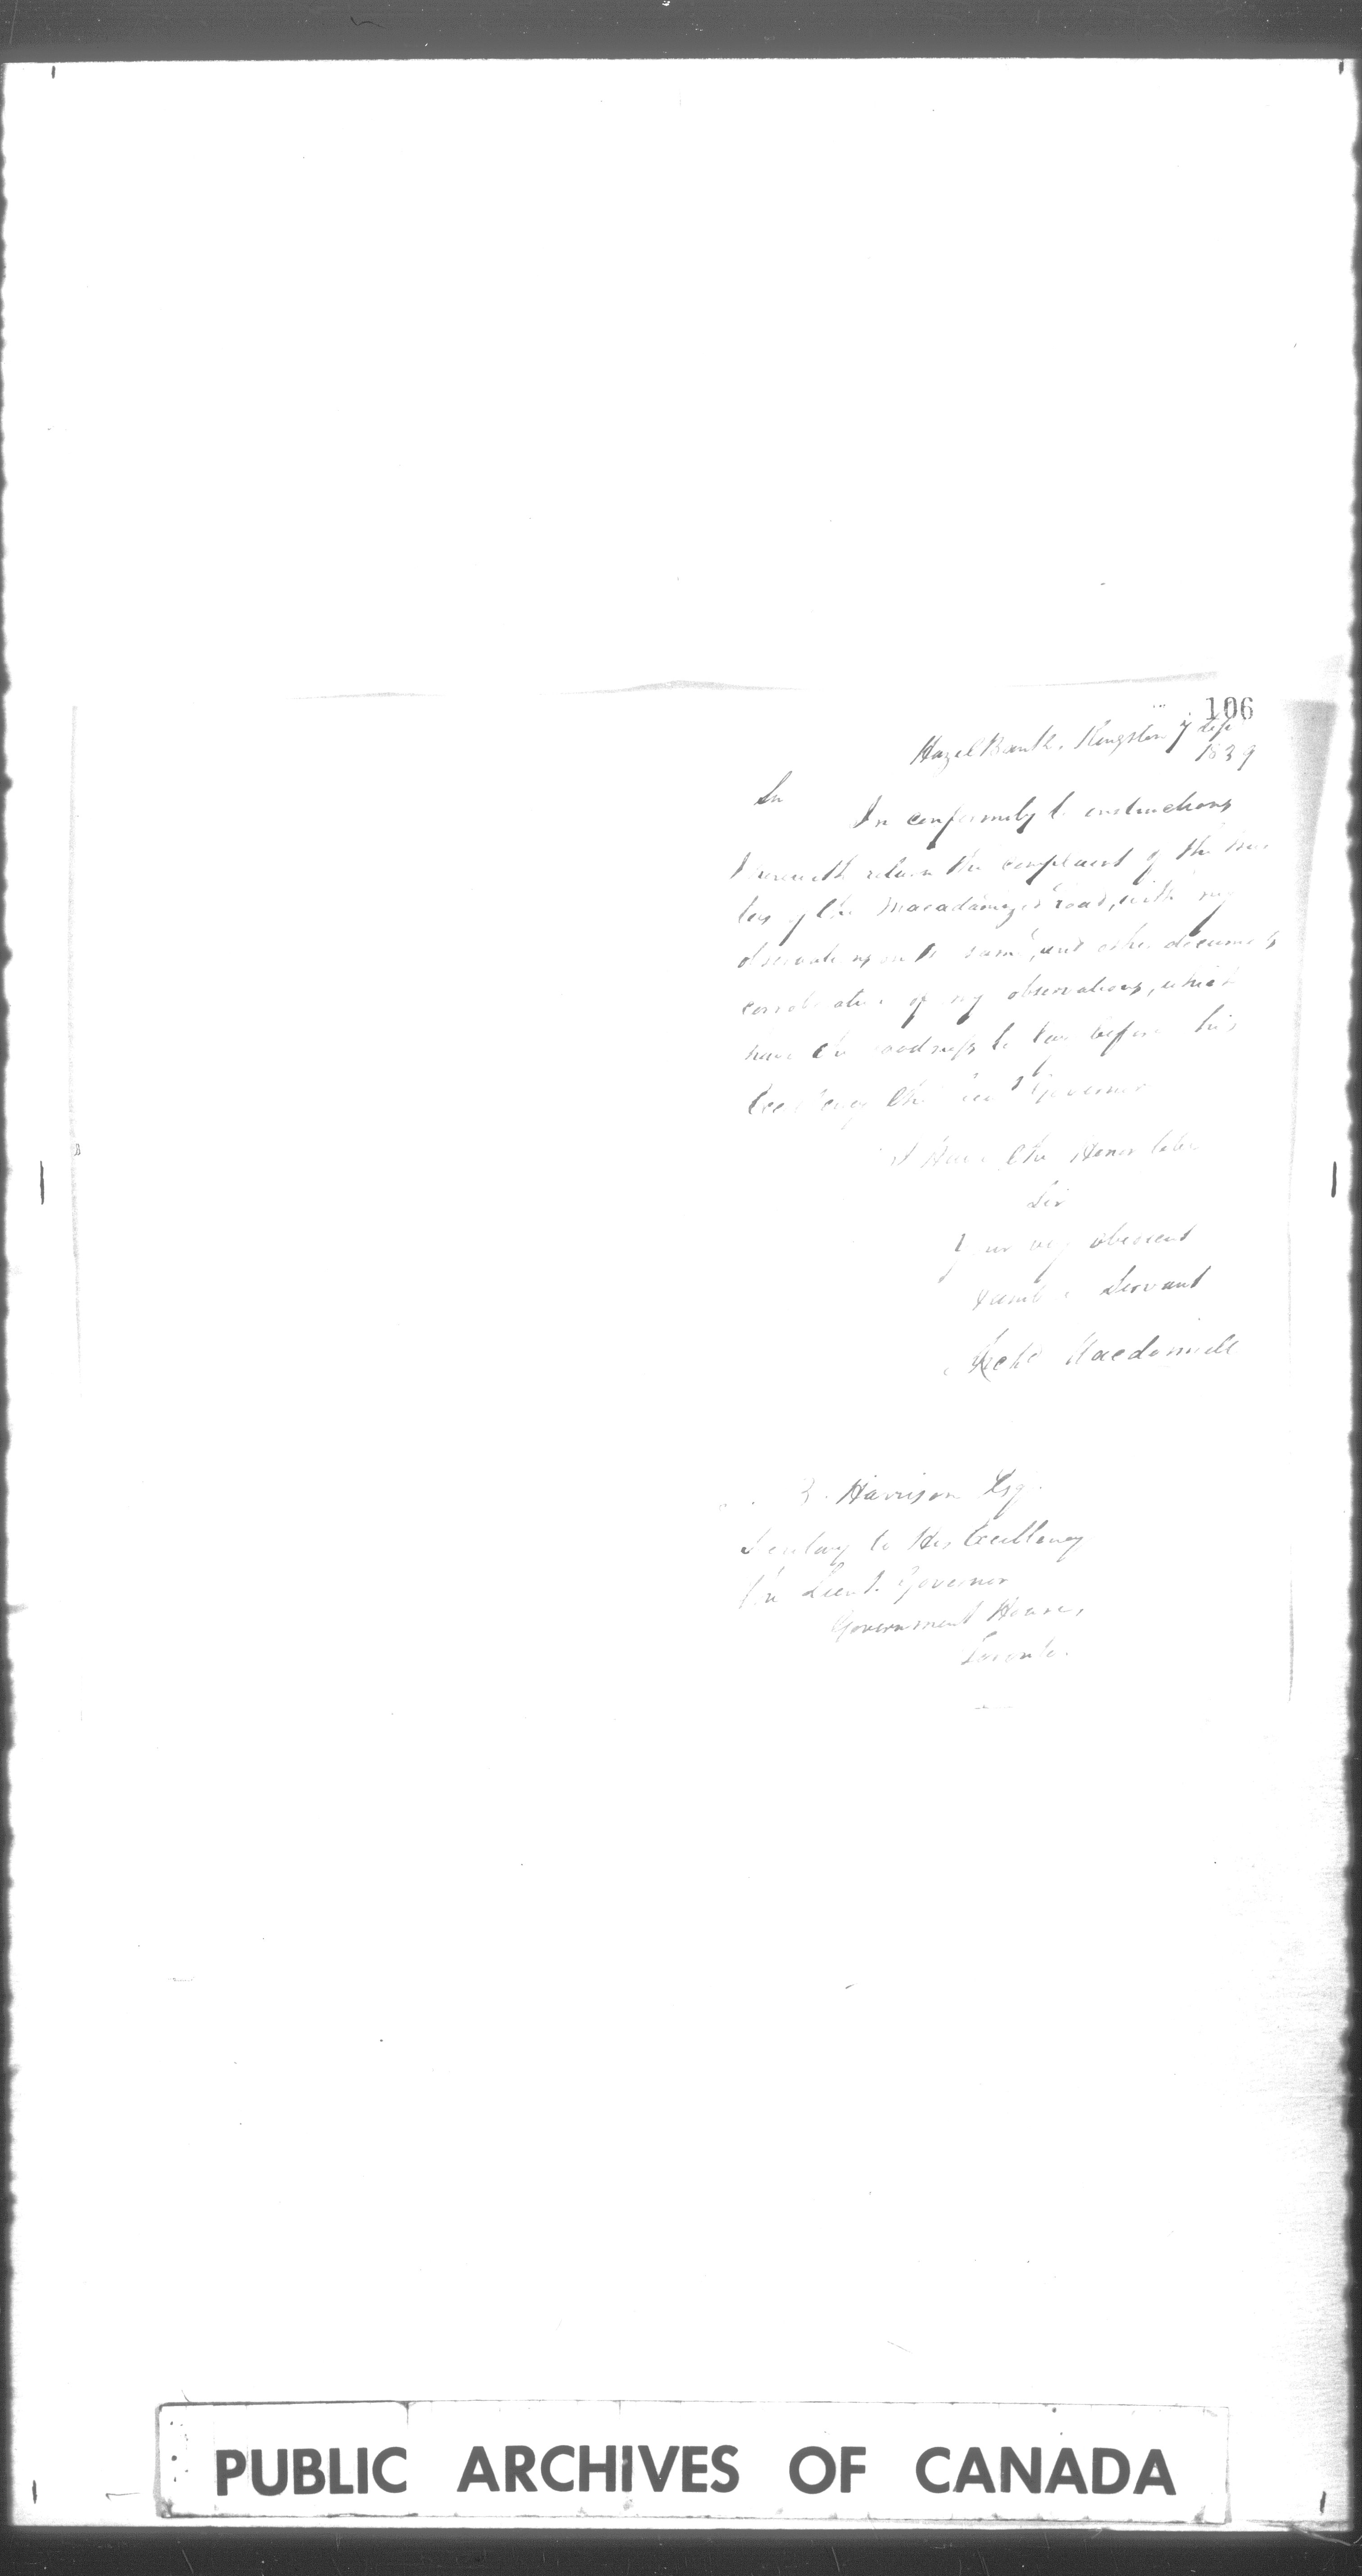 106
Hazel Bank, Kingston 7 Sep
1839
Sir
In conformity to instructions
I herewith return the complaint of the
of the Macadamized road, with my
same, and other documents
of my observations, which
have the goodness to lay before his
Excellency the Lieut Governor
I Have the Honor to be
Sir
Your very obedient
Humble Servant
Archd Macdonell
B. Harrison Esq.
Secretary to His Excellency
the Lieut. Governor
Government House,
Toronto.
PUBLIC ARCHIVES OF CANADA